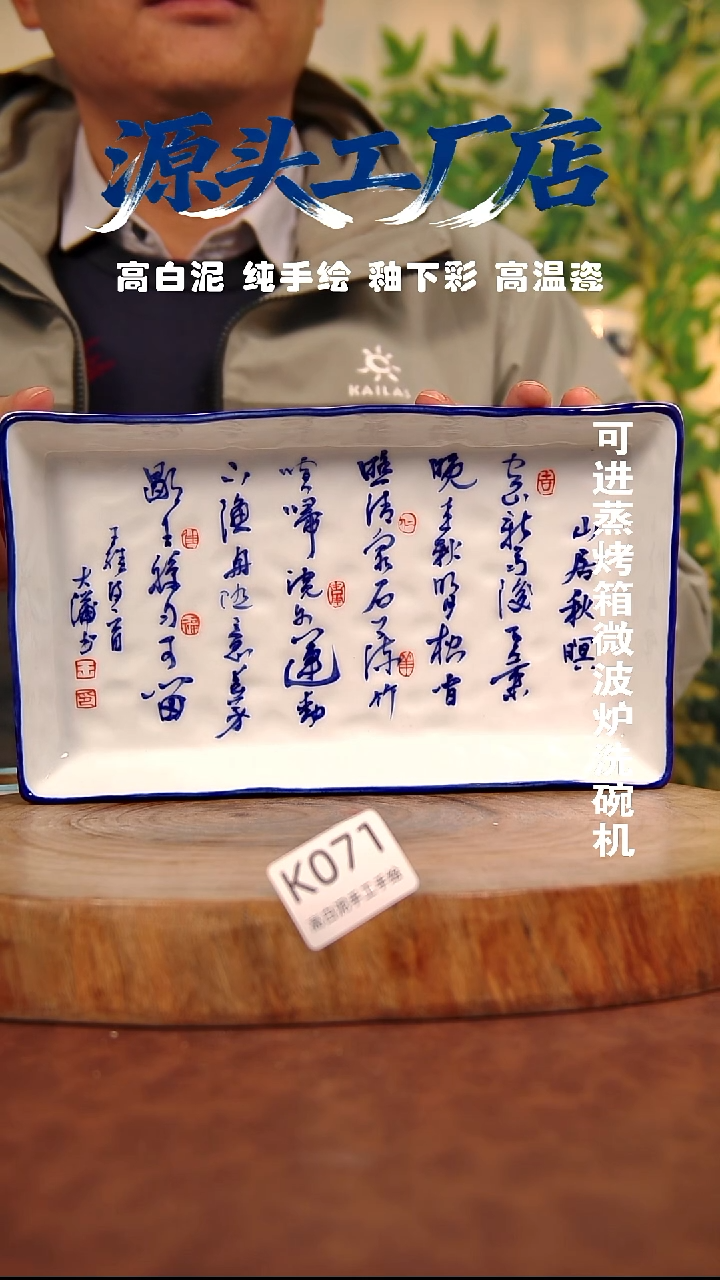 源头工厂店
高白泥 纯手绘 釉下彩 高温瓷
KAILAS
可进蒸烤箱微波炉洗碗机
山居秋暝
空山新雨後天氣
晚来秋明月松间
照清泉石上流竹
喧歸浣女蓮動
下漁舟随意春芳
歇王孫自可留
王维诗一首
K071
高白泥手工手绘